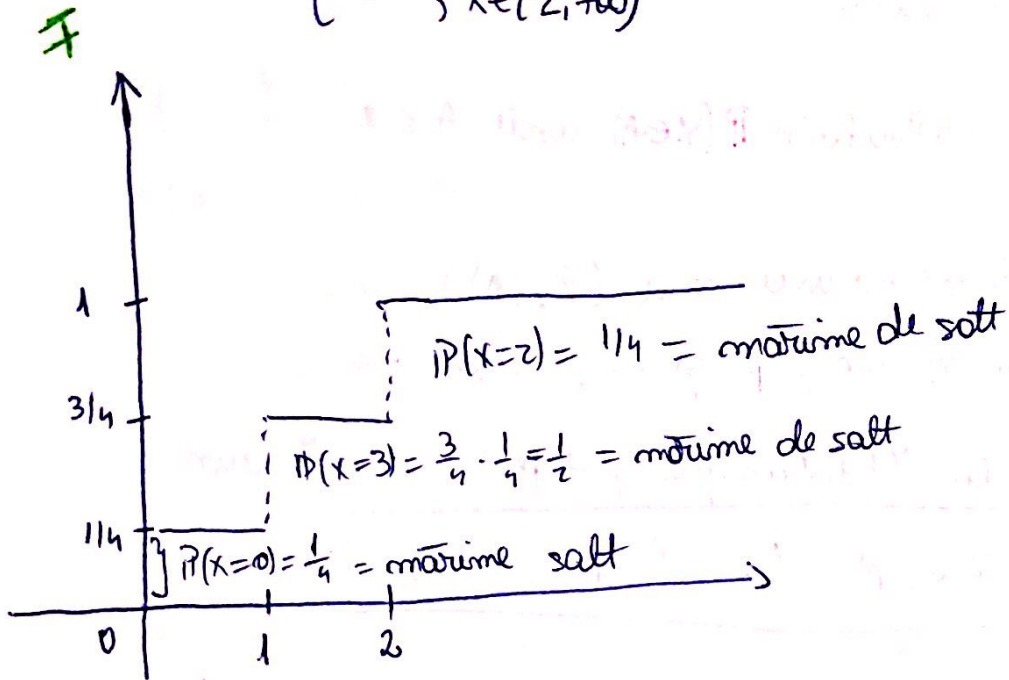 { , x∈(2,+∞)
F
1
P(x=2) = 1/4 = mărime de salt
3/4
P(x=3) = 3/4 · 1/4 = 1/2 = mărime de salt
1/4
P(x=0) = 1/4 = mărime salt
0 1 2